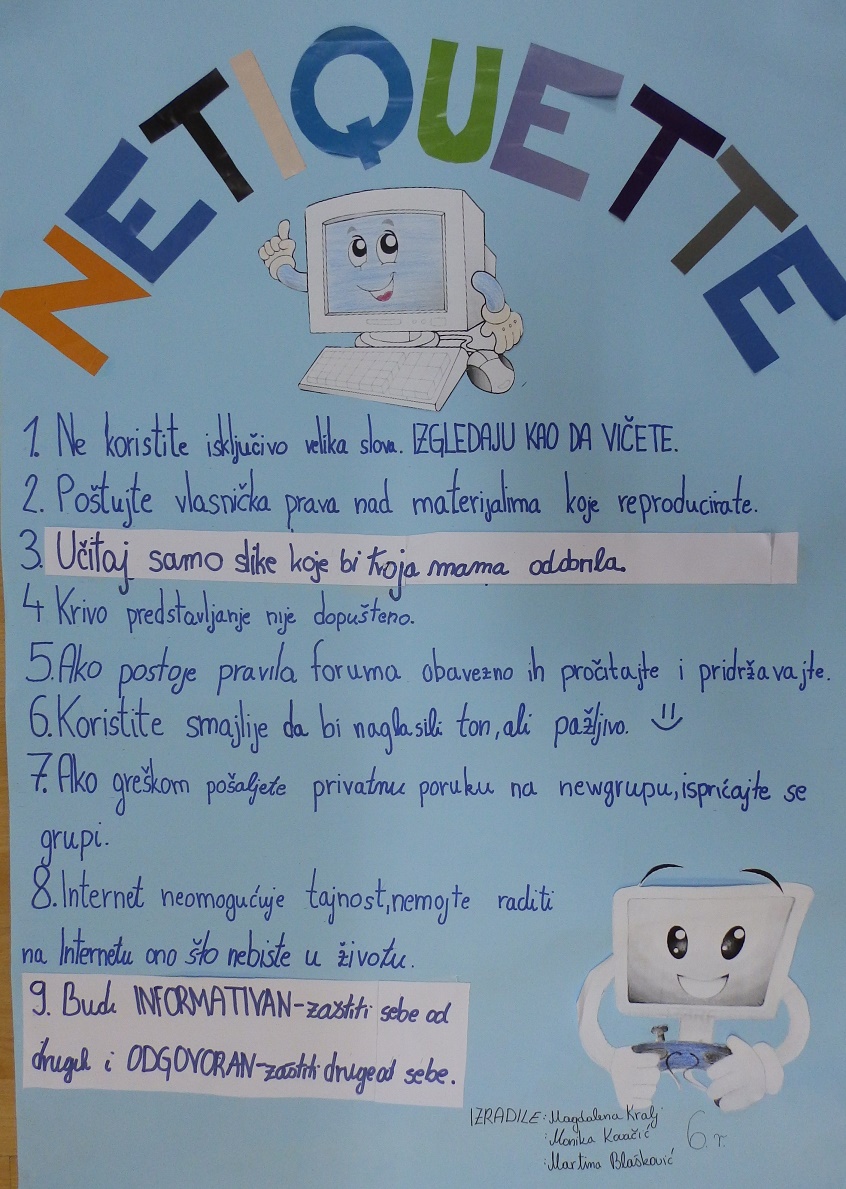 NETIQUETTE
1. Ne koristite isključivo velika slova. IZGLEDAJU KAO DA VIČETE.
2. Poštujte vlasnička prava nad materijalima koje reproducirate.
3. Učitaj samo slike koje bi tvoja mama odobrila.
4 Krivo predstavljanje nije dopušteno.
5. Ako postoje pravila foruma obavezno ih pročitajte i pridržavajte.
6. Koristite smajlije da bi naglasili ton, ali pažljivo.
7. Ako greškom pošaljete privatnu poruku na newgrupu, ispričajte se
grupi.
8. Internet neomogućuje tajnost, nemojte raditi
na Internetu ono što nebiste u životu.
9. Budi INFORMATIVAN-zaštiti sebe od
drugih i ODGOVORAN-zaštiti druge od sebe.
IZRADILE: Magdalena Kralj
: Monika Kovačić
: Martina Blašković
6. r.